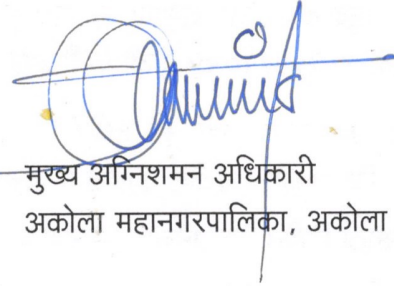 मुख्य अग्निशमन अधिकारी
अकोला महानगरपालिका, अकोला